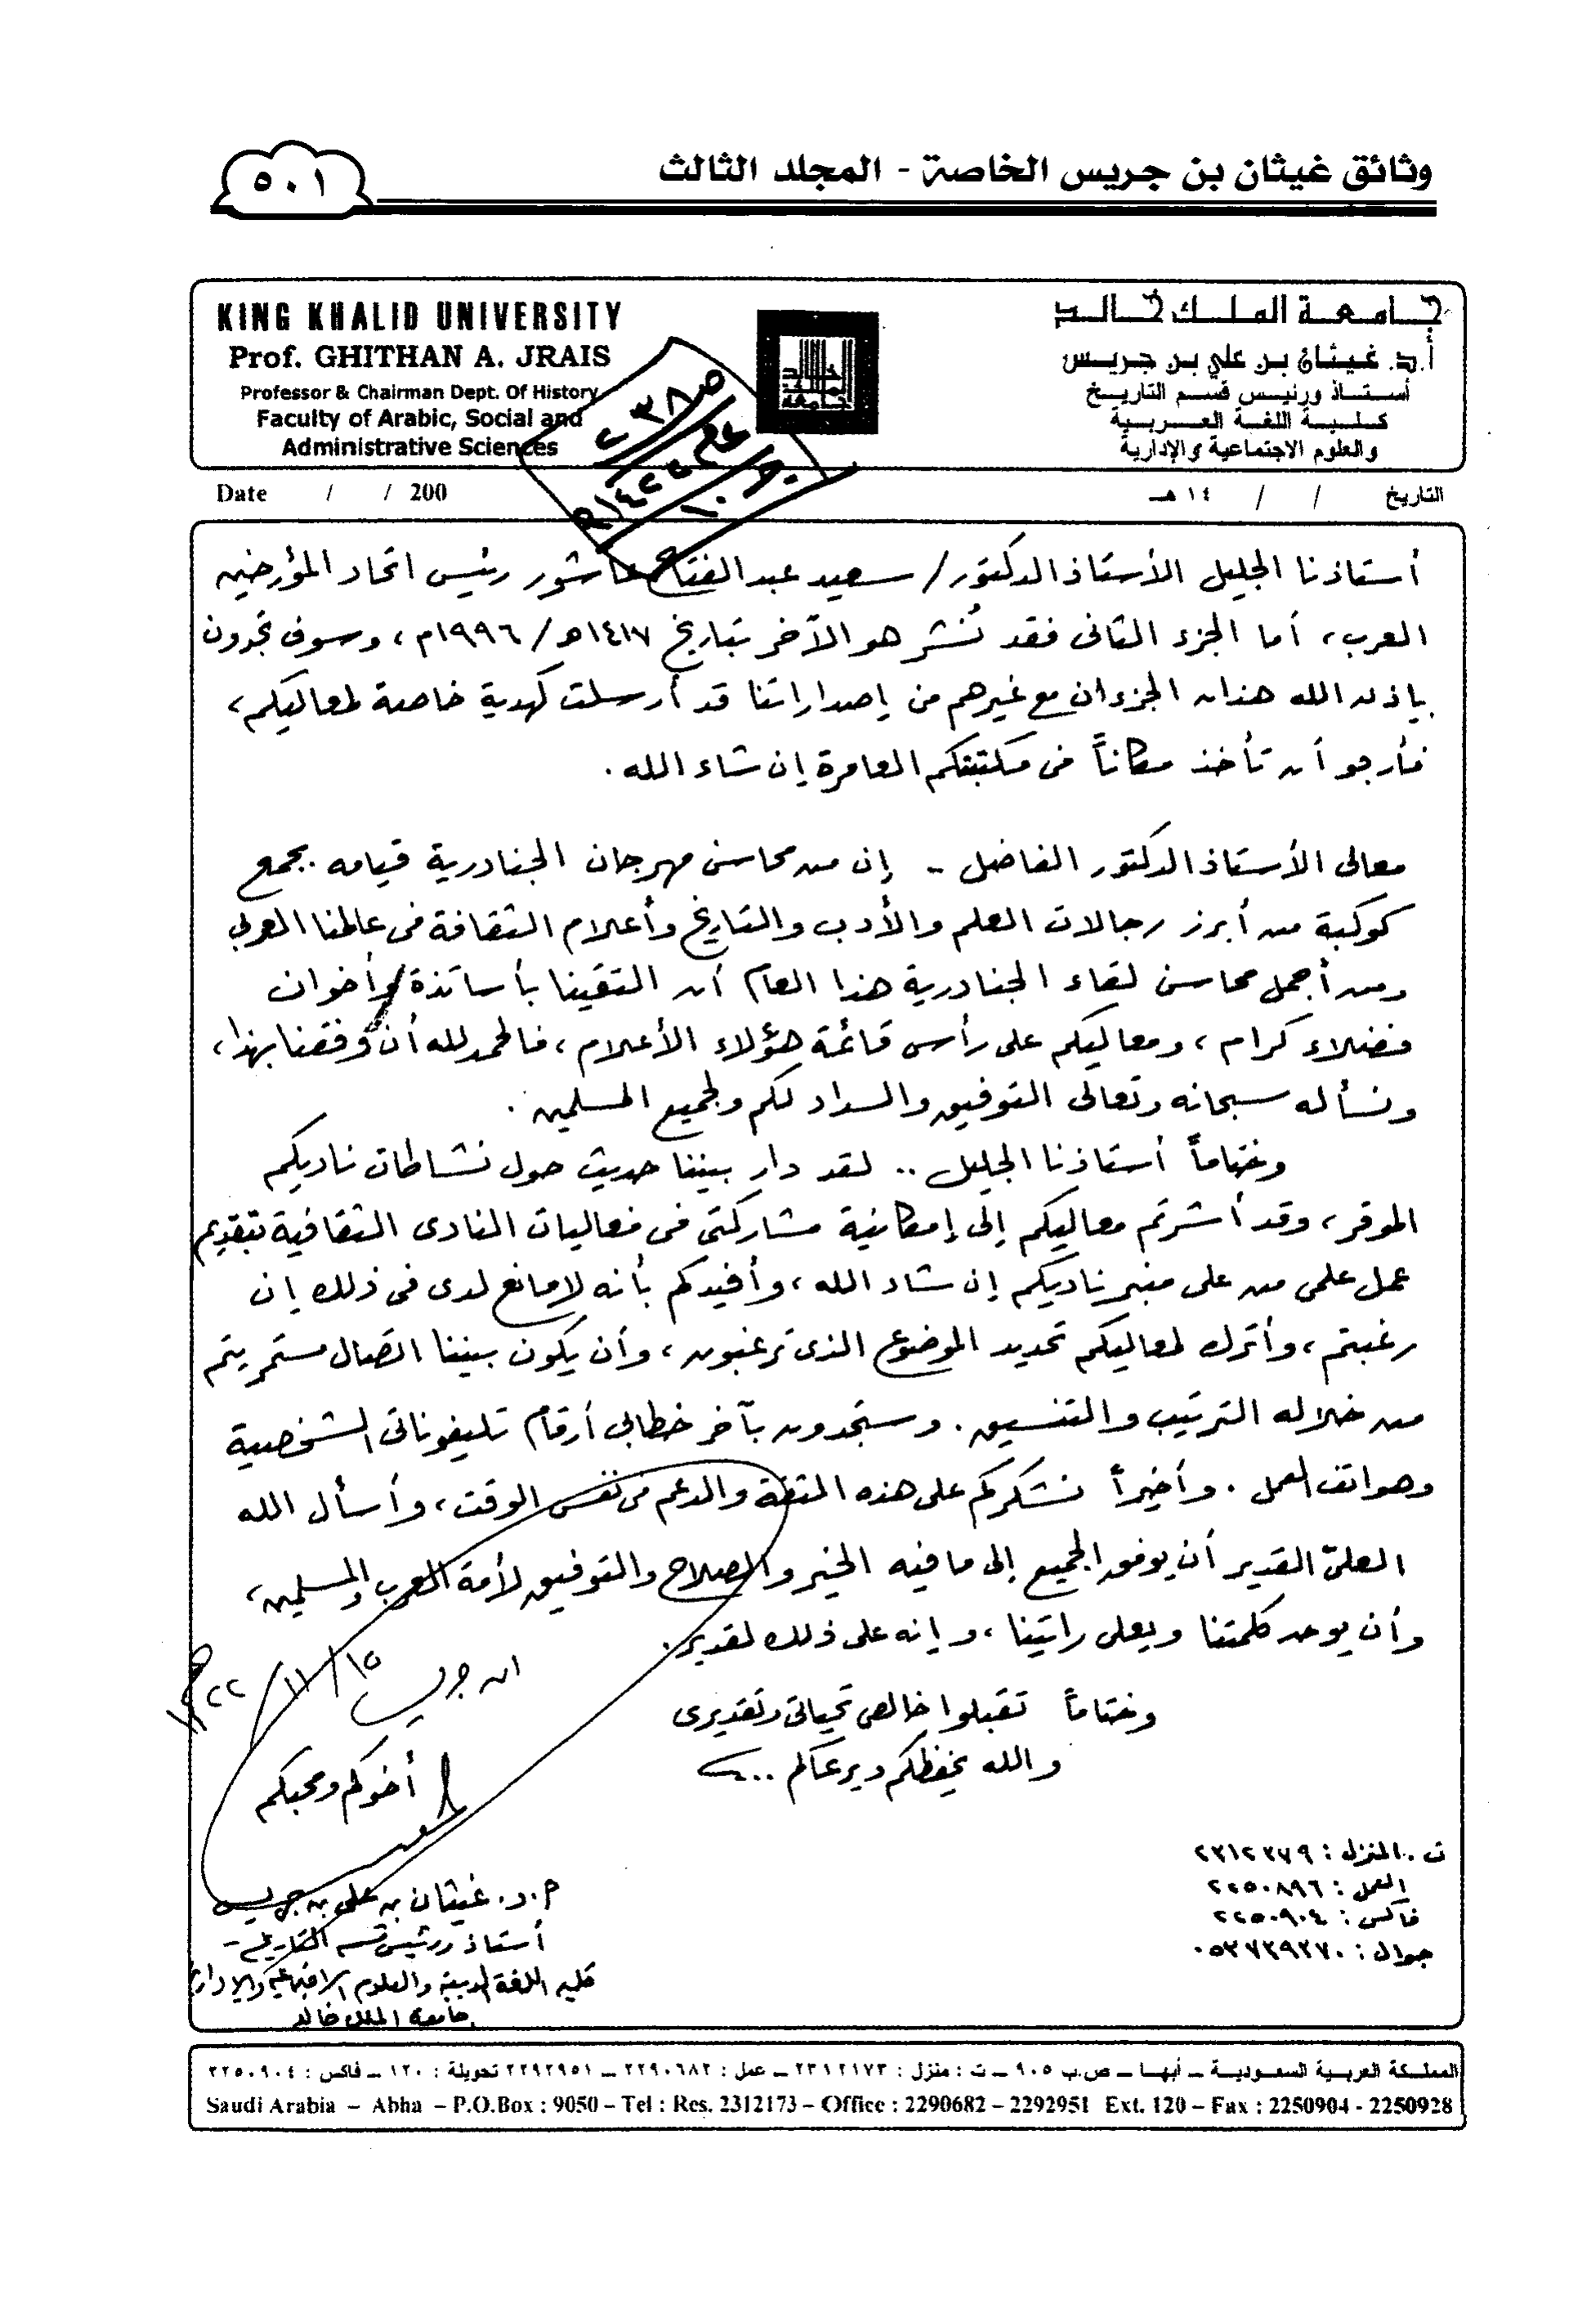 وثائق غيثان بن جريس الخاصة - المجلد الثالث
٥٠١
KING KHALID UNIVERSITY
Prof. GHITHAN A. JRAIS
Professor & Chairman Dept. Of History
Faculty of Arabic, Social and
Administrative Sciences
جامعة الملك خالد
أ.د. غيثان بن علي بن جريس
أستاذ ورئيس قسم التاريخ
كلية اللغة العربية
والعلوم الاجتماعية والإدارية
ص ٢٣٨
عام ١٤٢٢هـ
جـ ١٠
Date / / 200
التاريخ / / ١٤هـ
أستاذنا الجليل الأستاذ الدكتور/ سعيد عبد الفتاح عاشور رئيس اتحاد المؤرخين
العرب، أما الجزء الثانى فقد نُشر هو الآخر بتاريخ ١٤١٧هـ/ ١٩٩٦م، وسوف تجدون
بإذن الله هذان الجزءان مع غيرهم من إصداراتنا قد أرسلت كهدية خاصة لمعاليكم،
فأرجو أن تأخذ مكاناً فى مكتبتكم العامرة إن شاء الله.
معالى الأستاذ الدكتور الفاضل - إن من محاسن مهرجان الجنادرية قيامه بجمع
كوكبة من أبرز رجالات العلم والأدب والتاريخ وأعلام الثقافة فى عالمنا العربي
ومن أجمل محاسن لقاء الجنادرية هذا العام أن التقينا بأساتذة وأخوان
فضلاء كرام، ومعاليكم على رأس قائمة هؤلاء الأعلام، فالحمد لله أن وفقنا بهذا،
ونسأله سبحانه وتعالى التوفيق والسداد لكم ولجميع المسلمين.
وختاماً أستاذنا الجليل .. لقد دار بيننا حديث حول نشاطات ناديكم
الموقر، وقد أشرتم معاليكم إلى إمكانية مشاركتي فى فعاليات النادى الثقافية بتقديم
عمل علمى من على منبر ناديكم إن شاء الله، وأفيدكم بأنه لا مانع لدى فى ذلك إن
رغبتم، وأترك لمعاليكم تحديد الموضوع الذى ترغبون، وأن يكون بيننا اتصال مستمر يتم
من خلاله الترتيب والتنسيق. وستجدون بآخر خطابي أرقام تليفوناتى الشخصية
وهواتف العمل. وأخيراً نشكركم على هذه الثقة والدعم فى نفس الوقت، وأسأل الله
العلىّ القدير أن يوفق الجميع إلى ما فيه الخير والصلاح والتوفيق لأمة العرب والمسلمين،
وأن يوحد كلمتنا ويعلى رايتنا، وإنه على ذلك لقدير.
ابن جريس ١٥/ ١١/ ١٤٢٢هـ
وختاماً تقبلوا خالص تحياتى وتقديرى
والله يحفظكم ويرعاكم ..
أخوكم ومحبكم
أ.د. غيثان بن على بن جريس
أستاذ ورئيس قسم التاريخ -
كلية اللغة العربية والعلوم الاجتماعية والإدارية
جامعة الملك خالد
ت. المنزل : ٢٣١٢٣٧٩
العمل : ٢٢٥٠٨٩٦
فاكس : ٢٢٥٠٩٠٤
جوال : ٠٥٣٧٣٩٣٧٠
المملكة العربية السعودية - أبها - ص.ب ٩٠٥ - ت : منزل : ٢٣١٢١٧٣ - عمل : ٢٢٩٠٦٨٢ - ٢٢٩٢٩٥١ تحويلة : ١٢٠ - فاكس : ٢٢٥٠٩٠٤
Saudi Arabia – Abha – P.O.Box : 9050 – Tel : Res. 2312173 – Office : 2290682 – 2292951 Ext. 120 – Fax : 2250904 - 2250928